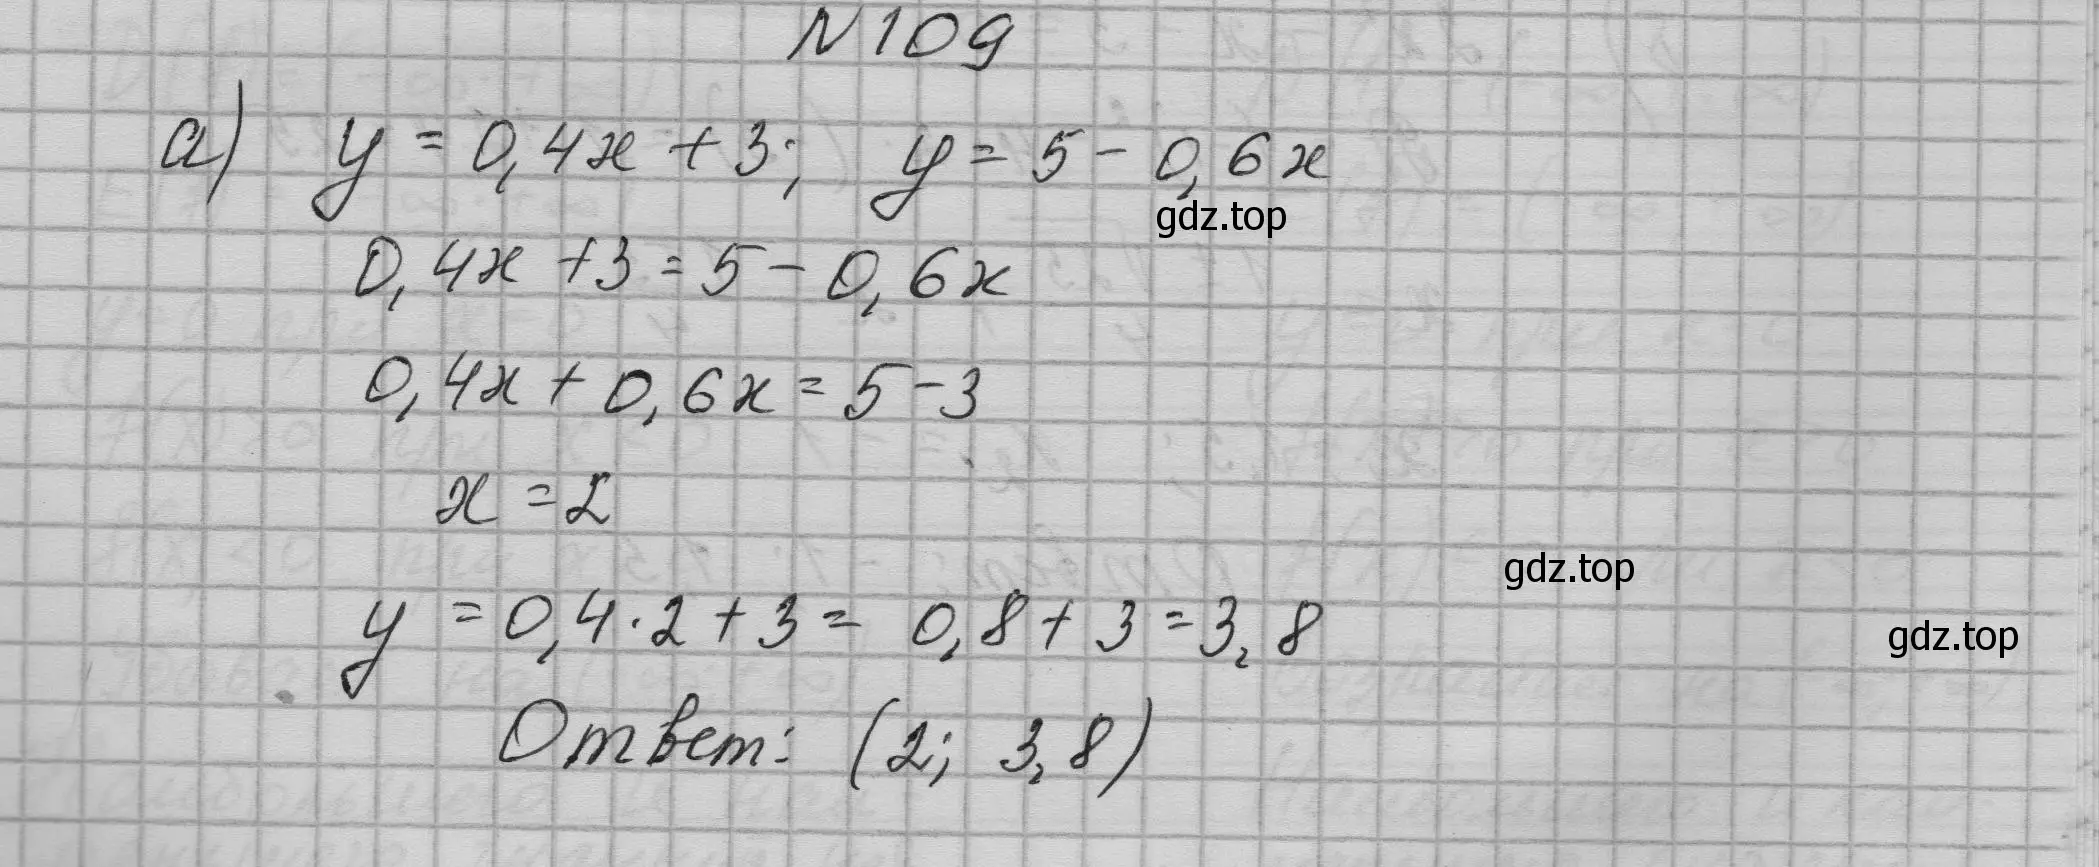 N 109
а) y = 0,4x + 3; y = 5 - 0,6x
gdz.top
0,4x + 3 = 5 - 0,6x
0,4x + 0,6x = 5 - 3
x = 2
gdz.top
y = 0,4 · 2 + 3 = 0,8 + 3 = 3,8
gdz.top
Ответ: (2; 3,8)